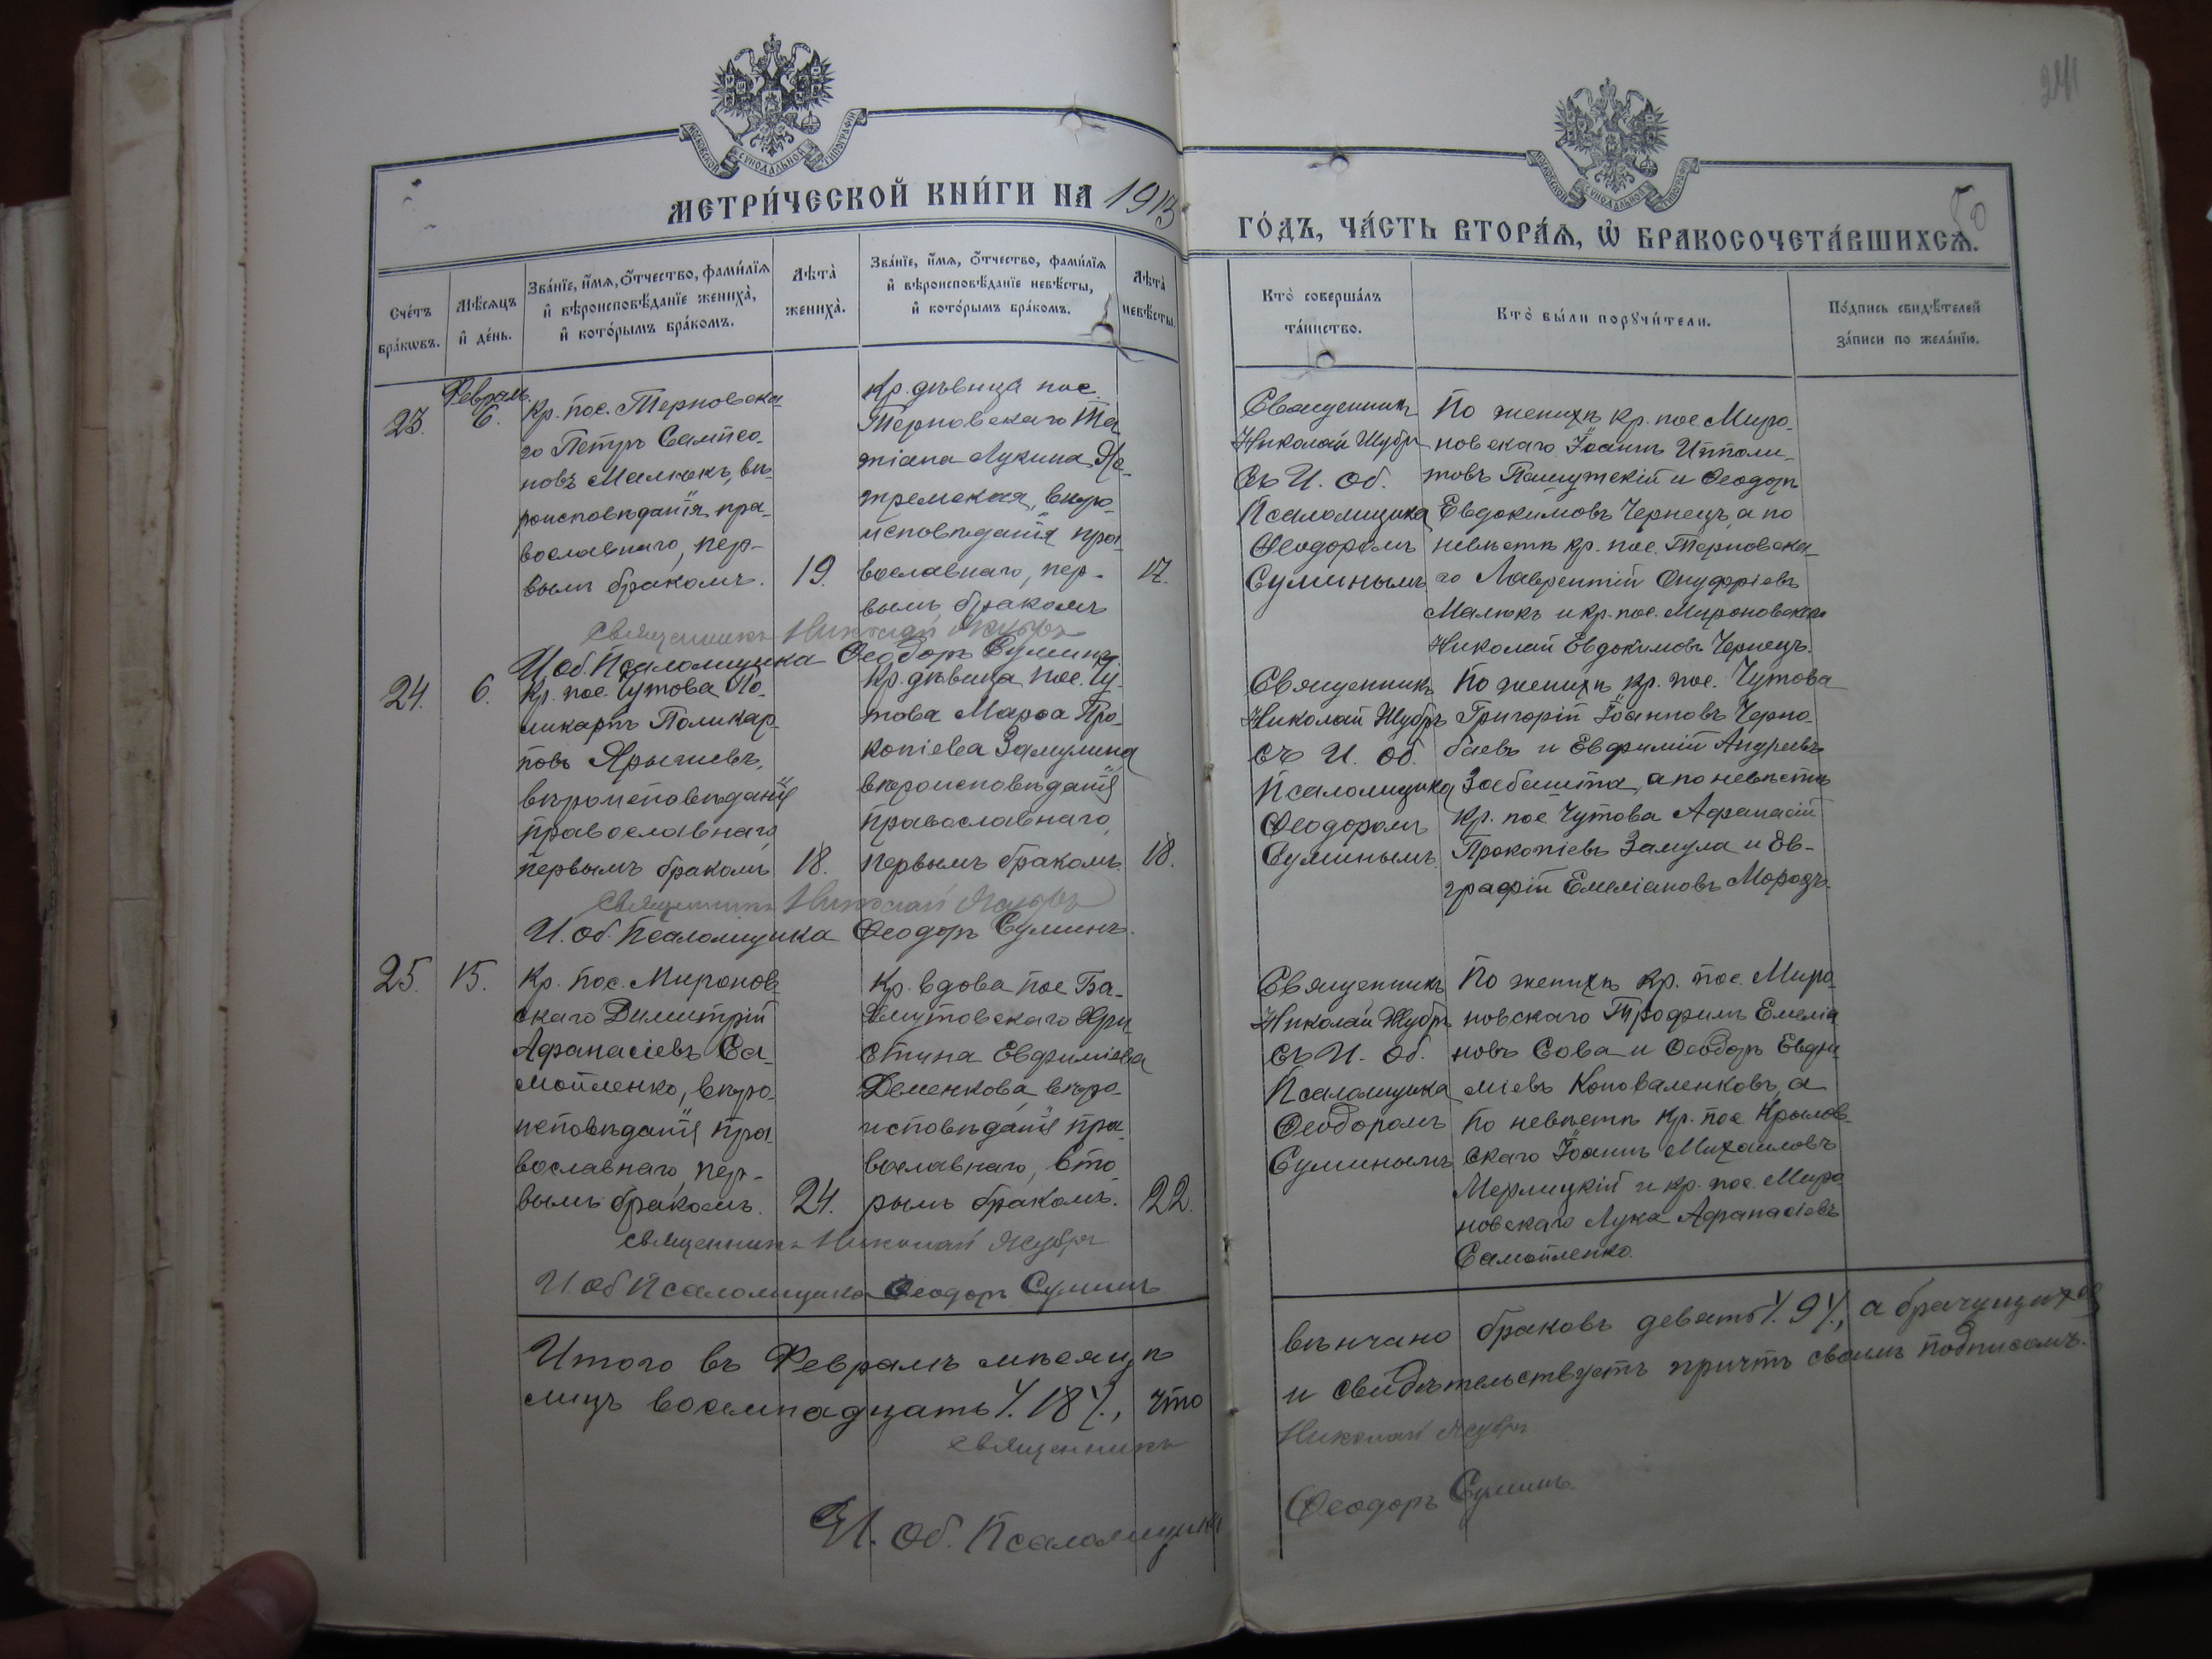 241
МОСКОВСКОЙ СΥНОДАЛЬНОЙ ТИПОГРАФІИ
МОСКОВСКОЙ СΥНОДАЛЬНОЙ ТИПОГРАФІИ
МЕТРИ́ЧЕСКОЙ КНИ́ГИ НА 1913
ГО́ДЪ, ЧА́СТЬ ВТОРА́Ѧ, Ѡ҆ БРАКОСОЧЕТА́ВШИХСѦ.
50
Сче́тъ
бра́кѡвъ.
Мѣ́сяцъ
и҆ де́нь.
Зва́нїе, и҆́мѧ, ѻ҆́тчество, фами́лїѧ
и҆ вѣроисповѣ́данїе жениха̀,
и҆ кото́рымъ бра́комъ.
Лѣта̀
жениха̀.
Зва́нїе, и҆́мѧ, ѻ҆́тчество, фами́лїѧ
и҆ вѣроисповѣ́данїе невѣ́сты,
и҆ кото́рымъ бра́комъ.
Лѣта̀
невѣ́сты.
Кто̀ соверша́лъ
та́инство.
Кто̀ бы́ли порꙋчи́тели.
По́дпись свидѣ́телей
за́писи по жела́нїю.
23.
Февраль.
6.
Кр. пос. Терновска-
го Петръ Сампсо-
новъ Малюкъ, вѣ-
роисповѣданія пра-
вославнаго, пер-
вымъ бракомъ.
19.
Кр. дѣвица пос.
Терновскаго Та-
тіана Лукина
вѣро-
исповѣданія пра-
вославнаго, пер-
вымъ бракомъ
17.
Священникъ
Николай Жубръ
съ И. об.
Псаломщика
Ѳеодоромъ
Суминымъ
По женихѣ кр. пос. Миро-
новскаго Іоаннъ Ипполи-
товъ и Ѳеодоръ
Евдокимовъ Чернецъ, а по
невѣстѣ кр. пос. Терновска-
го Лаврентій Онуфріевъ
Малюкъ и кр. пос. Мироновскаго
Николай Евдокимовъ Чернецъ.
Священникъ Николай Жубръ
И. об. Псаломщика Ѳеодоръ Суминъ.
24.
6.
Кр. пос. Чутова По-
ликарпъ Поликар-
повъ Ярышевъ,
вѣроисповѣданія
православнаго
первымъ бракомъ
18.
Кр. дѣвица пос. Чу-
това Марѳа Про-
копіева Замулина
вѣроисповѣданія
православнаго
первымъ бракомъ
18.
Священникъ
Николай Жубръ
съ И. об.
Псаломщика
Ѳеодоромъ
Суминымъ
По женихѣ кр. пос. Чутова
Григорій Іоанновъ Черно-
баевъ и Евфимій Андреевъ
Забашта, а по невѣстѣ
кр. пос. Чутова Афанасій
Прокопіевъ Замула и Ев-
графій Емеліановъ Морозъ.
Священникъ Николай Жубръ
И. об. Псаломщика Ѳеодоръ Суминъ.
25.
15.
Кр. пос. Миронов-
скаго Димитрій
Афанасіевъ Са-
мойленко, вѣро-
исповѣданія пра-
вославнаго, пер-
вымъ бракомъ.
24.
Кр. вдова пос. Ба-
хмутовскаго Хри-
стина Евфиміева
Деменкова, вѣро-
исповѣданія пра-
вославнаго, вто-
рымъ бракомъ.
22.
Священникъ
Николай Жубръ
съ И. об.
Псаломщика
Ѳеодоромъ
Суминымъ
По женихѣ кр. пос. Миро-
новскаго Трофимъ Емеліа-
новъ Сова и Ѳеодоръ Евфи-
міевъ Коноваленковъ, а
по невѣстѣ кр. пос. Крылов-
скаго Іоаннъ Михаиловъ
Мерлицкій и кр. пос. Миро-
новскаго Лука Афанасіевъ
Самойленко.
Священникъ Николай Жубръ
И об Псаломщика Ѳеодоръ Суминъ
Итого въ Февралѣ мѣсяцѣ вѣнчано браковъ девять /. 9 /., а брачущихся
лицъ восемнадцать /. 18 /., что и свидѣтельствуетъ причтъ своимъ подписомъ.
Священникъ Николай Жубръ
И. об. Псаломщика Ѳеодоръ Суминъ